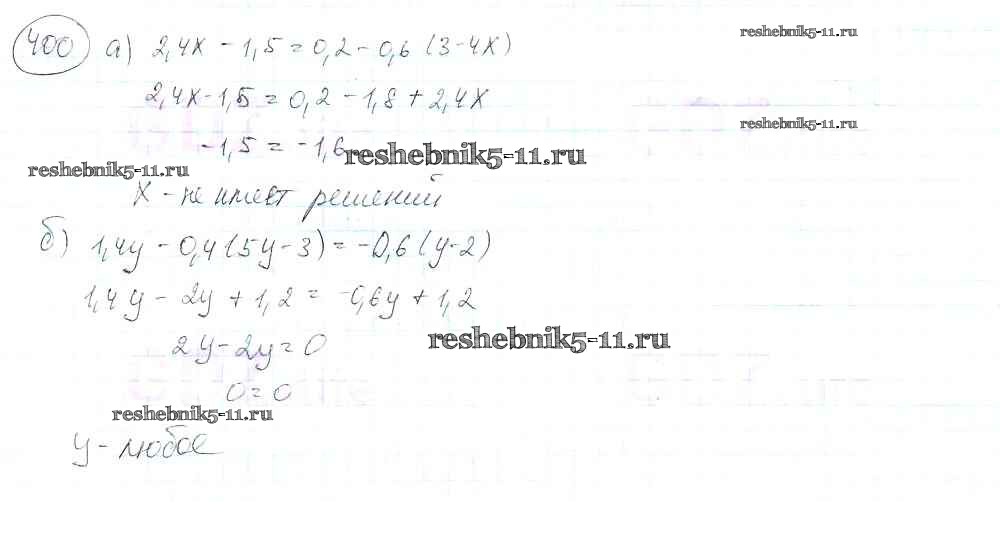 400 а) 2,4x - 1,5 = 0,2 - 0,6 (3-4x)
reshebnik5-11.ru
2,4x - 1,5 = 0,2 - 1,8 + 2,4x
reshebnik5-11.ru
-1,5 = -1,6
reshebnik5-11.ru
reshebnik5-11.ru
x - не имеет решений
б) 1,4y - 0,4 (5y - 3) = -0,6 (y-2)
1,4y - 2y + 1,2 = -0,6y + 1,2
reshebnik5-11.ru
2y - 2y = 0
0 = 0
reshebnik5-11.ru
y - любое